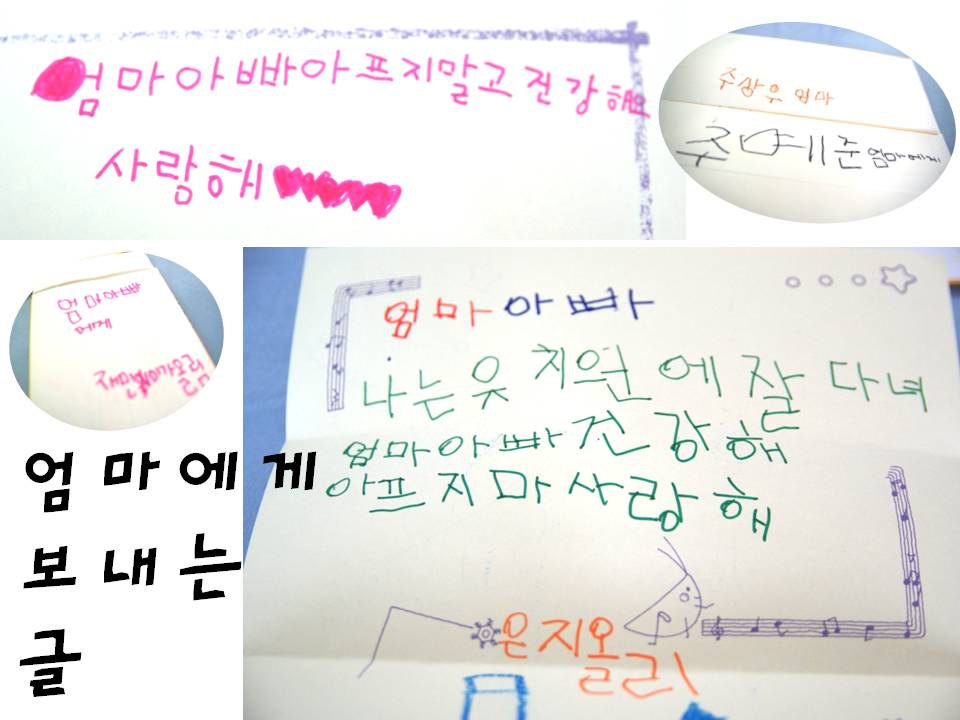 엄마아빠아프지말고건강해요
사랑해
주상우 엄마
엄마에게
엄마아빠
에게
엄마에게
보내는
글
엄마아빠
나는유치원에잘다녀
엄마아빠건강해
아프지마사랑해
은지올리